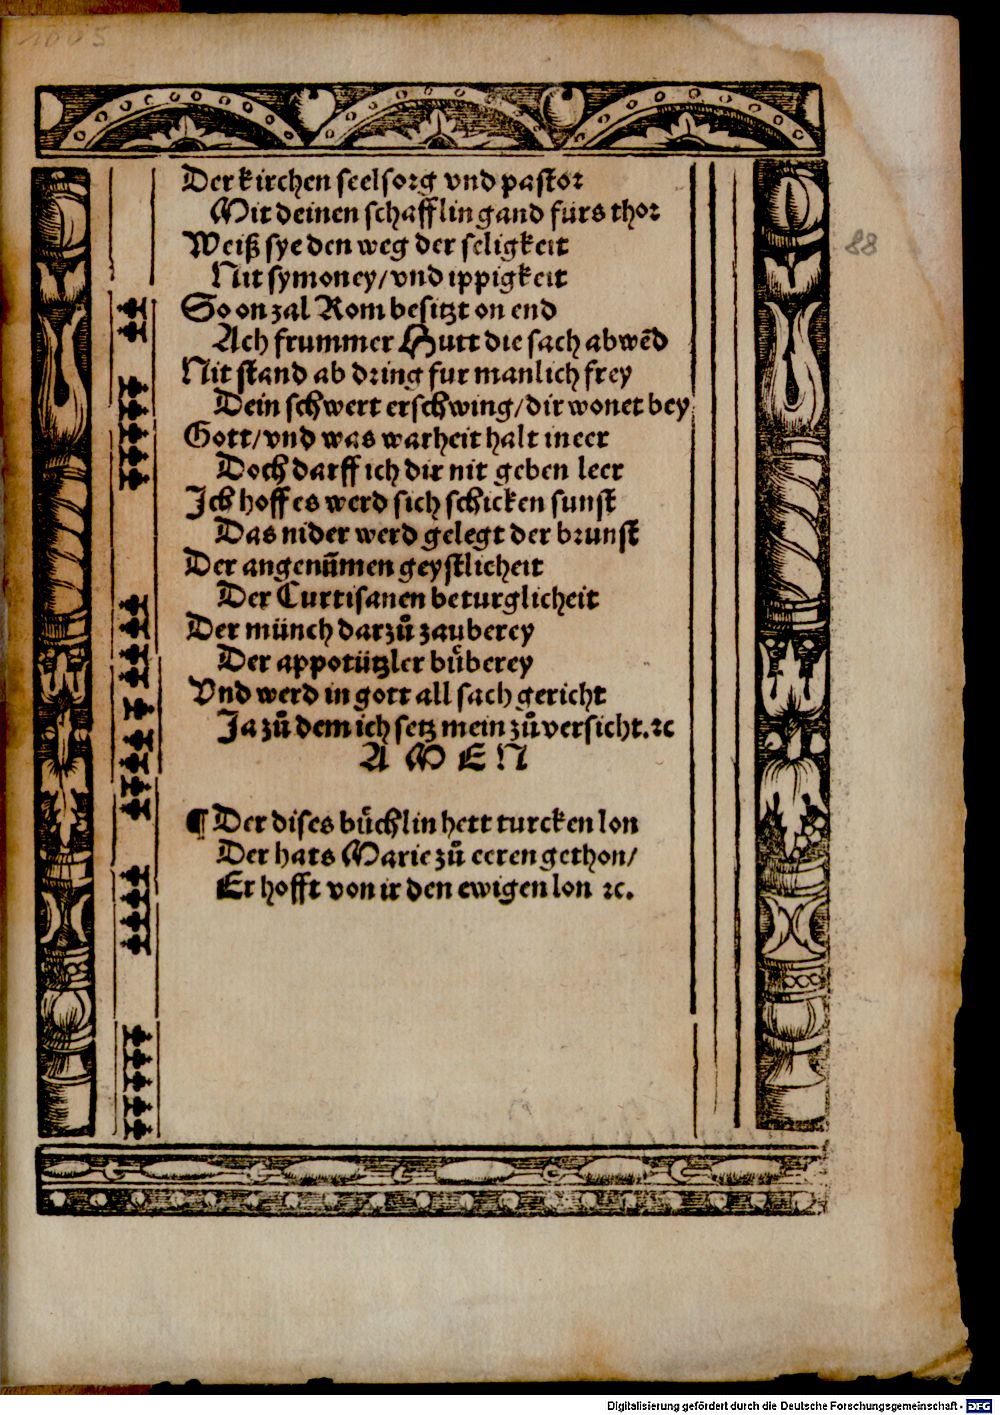 1005
Der kirchen seelsorg vnd pastor
Mit deinen schafflin gand fürs thor
Weiß sye den weg der seligkeit
Nit symoney/vnd ippigkeit
So on zal Rom besitzt on end
Ach frummer Hutt die sach abwēd
Nit stand ab dring fur manlich frey
Dein schwert erschwing/dir wonet bey
Gott/vnd was warheit halt in eer
Doch darff ich dir nit geben leer
Ich hoff es werd sich schicken sunst
Das nider werd gelegt der brunst
Der angenūmen geystlicheit
Der Curtisanen beturglicheit
Der münch darzů zauberey
Der appotützler bůberey
Vnd werd in gott all sach gericht
Ja zů dem ich setz mein zůversicht.ꝛc
A M E N
¶ Der dises bůchlin hett turcken lon
Der hats Marie zů eeren gethon/
Er hofft von ir den ewigen lon ꝛc.
88
Digitalisierung gefördert durch die Deutsche Forschungsgemeinschaft - DFG